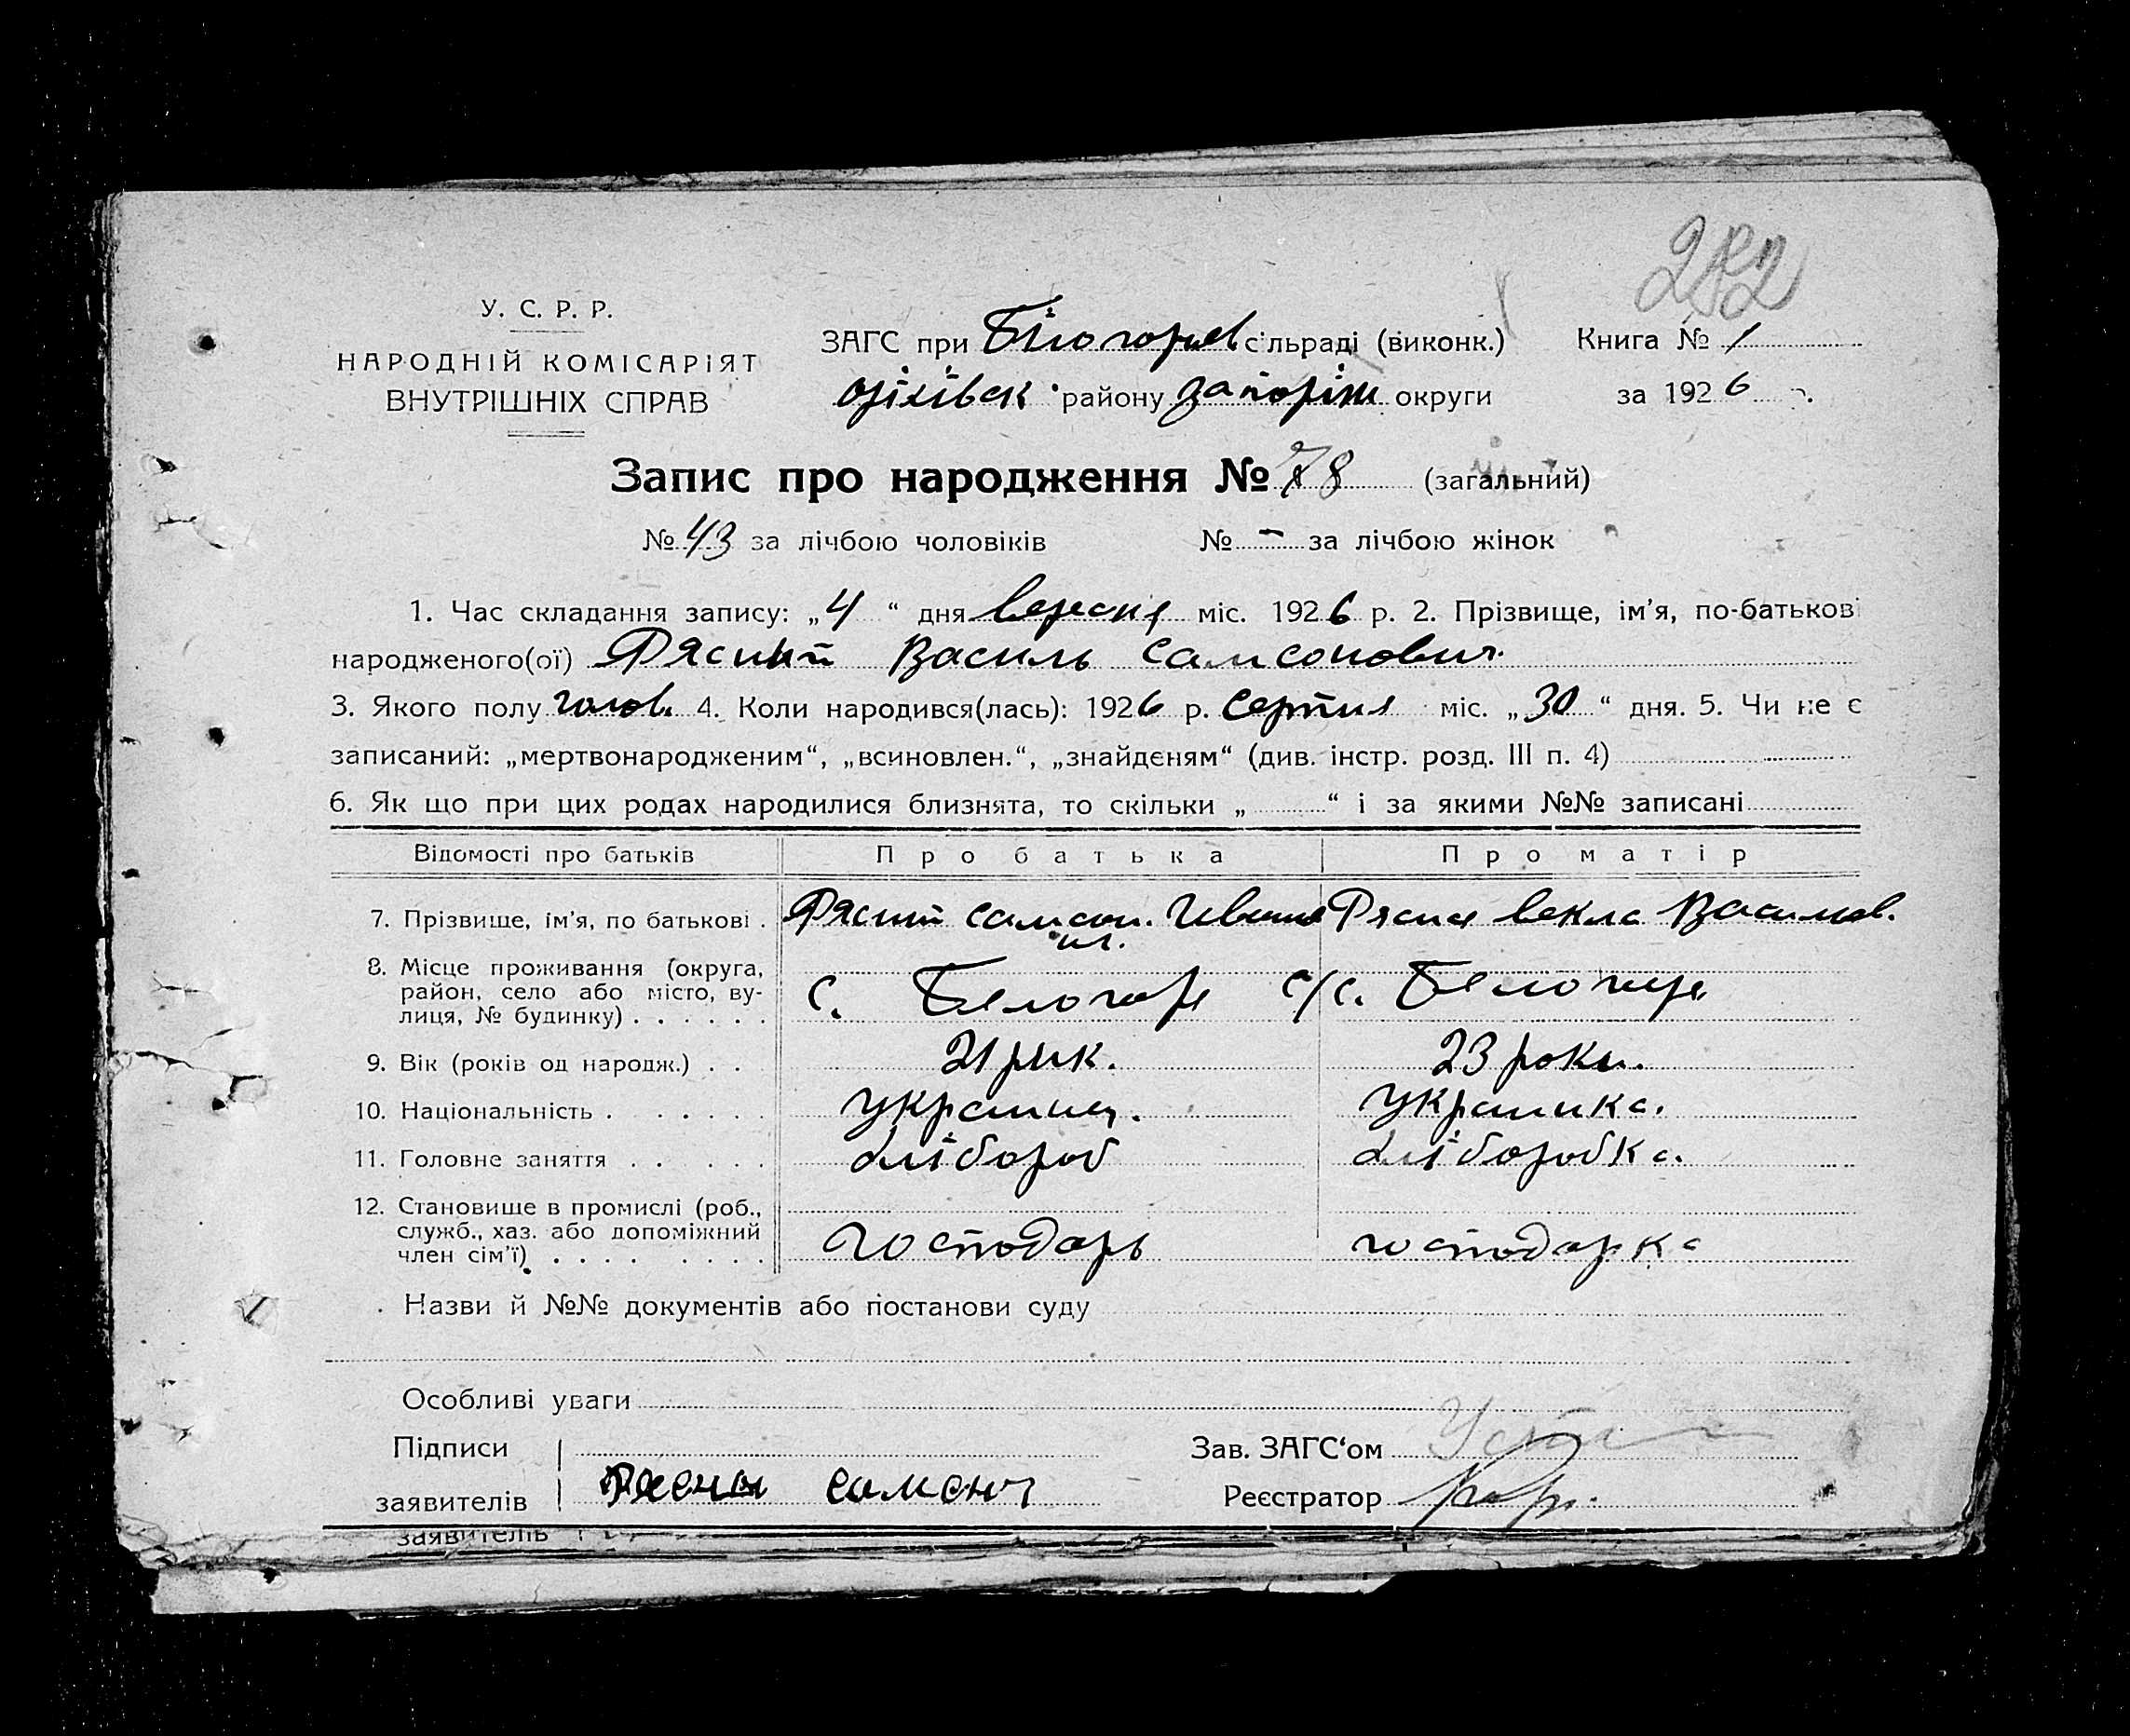 282
У. С. Р. Р.
НАРОДНІЙ КОМІСАРІЯТ
ВНУТРІШНІХ СПРАВ
ЗАГС при Білогорів сільраді (виконк.) Книга № 1
оріхівськ району запоріж округи за 1926 р.
Запис про народження № 78 (загальний)
№ 43 за лічбою чоловіків № - за лічбою жінок
1. Час складання запису: „4“ дня вересня міс. 1926 р. 2. Прізвище, ім'я, по-батькові
народженого(ої) Рясний Василь Самсонович
3. Якого полу чолов. 4. Коли народився(лась): 1926 р. Серпня міс. „30“ дня. 5. Чи не є
записаний: „мертвонародженим“, „всиновлен.“, „знайденям“ (див. інстр. розд. III п. 4)
6. Як що при цих родах народилися близнята, то скільки „ “ і за якими №№ записані
Відомості про батьків Про батька Про матір
7. Прізвище, ім'я, по батькові . Рясний Самсон. Рясна Векла Васильов.
8. Місце проживання (округа,
район, село або місто, ву-
лиця, № будинку) . . . . . . с. Белогорє с/с. Белогорє
9. Вік (років од народж.) . . 21 рик. 23 роки.
10. Національність . . . . . . україниц. українка.
11. Головне заняття . . . . . хлібороб хліборобка.
12. Становище в промислі (роб.,
служб., хаз. або допоміжний
член сім'ї) . . . . . . . . господарь господарка
Назви й №№ документів або постанови суду
Особливі уваги
Підписи Зав. ЗАГС‘ом
заявителів Самсон Реєстратор
заявителів